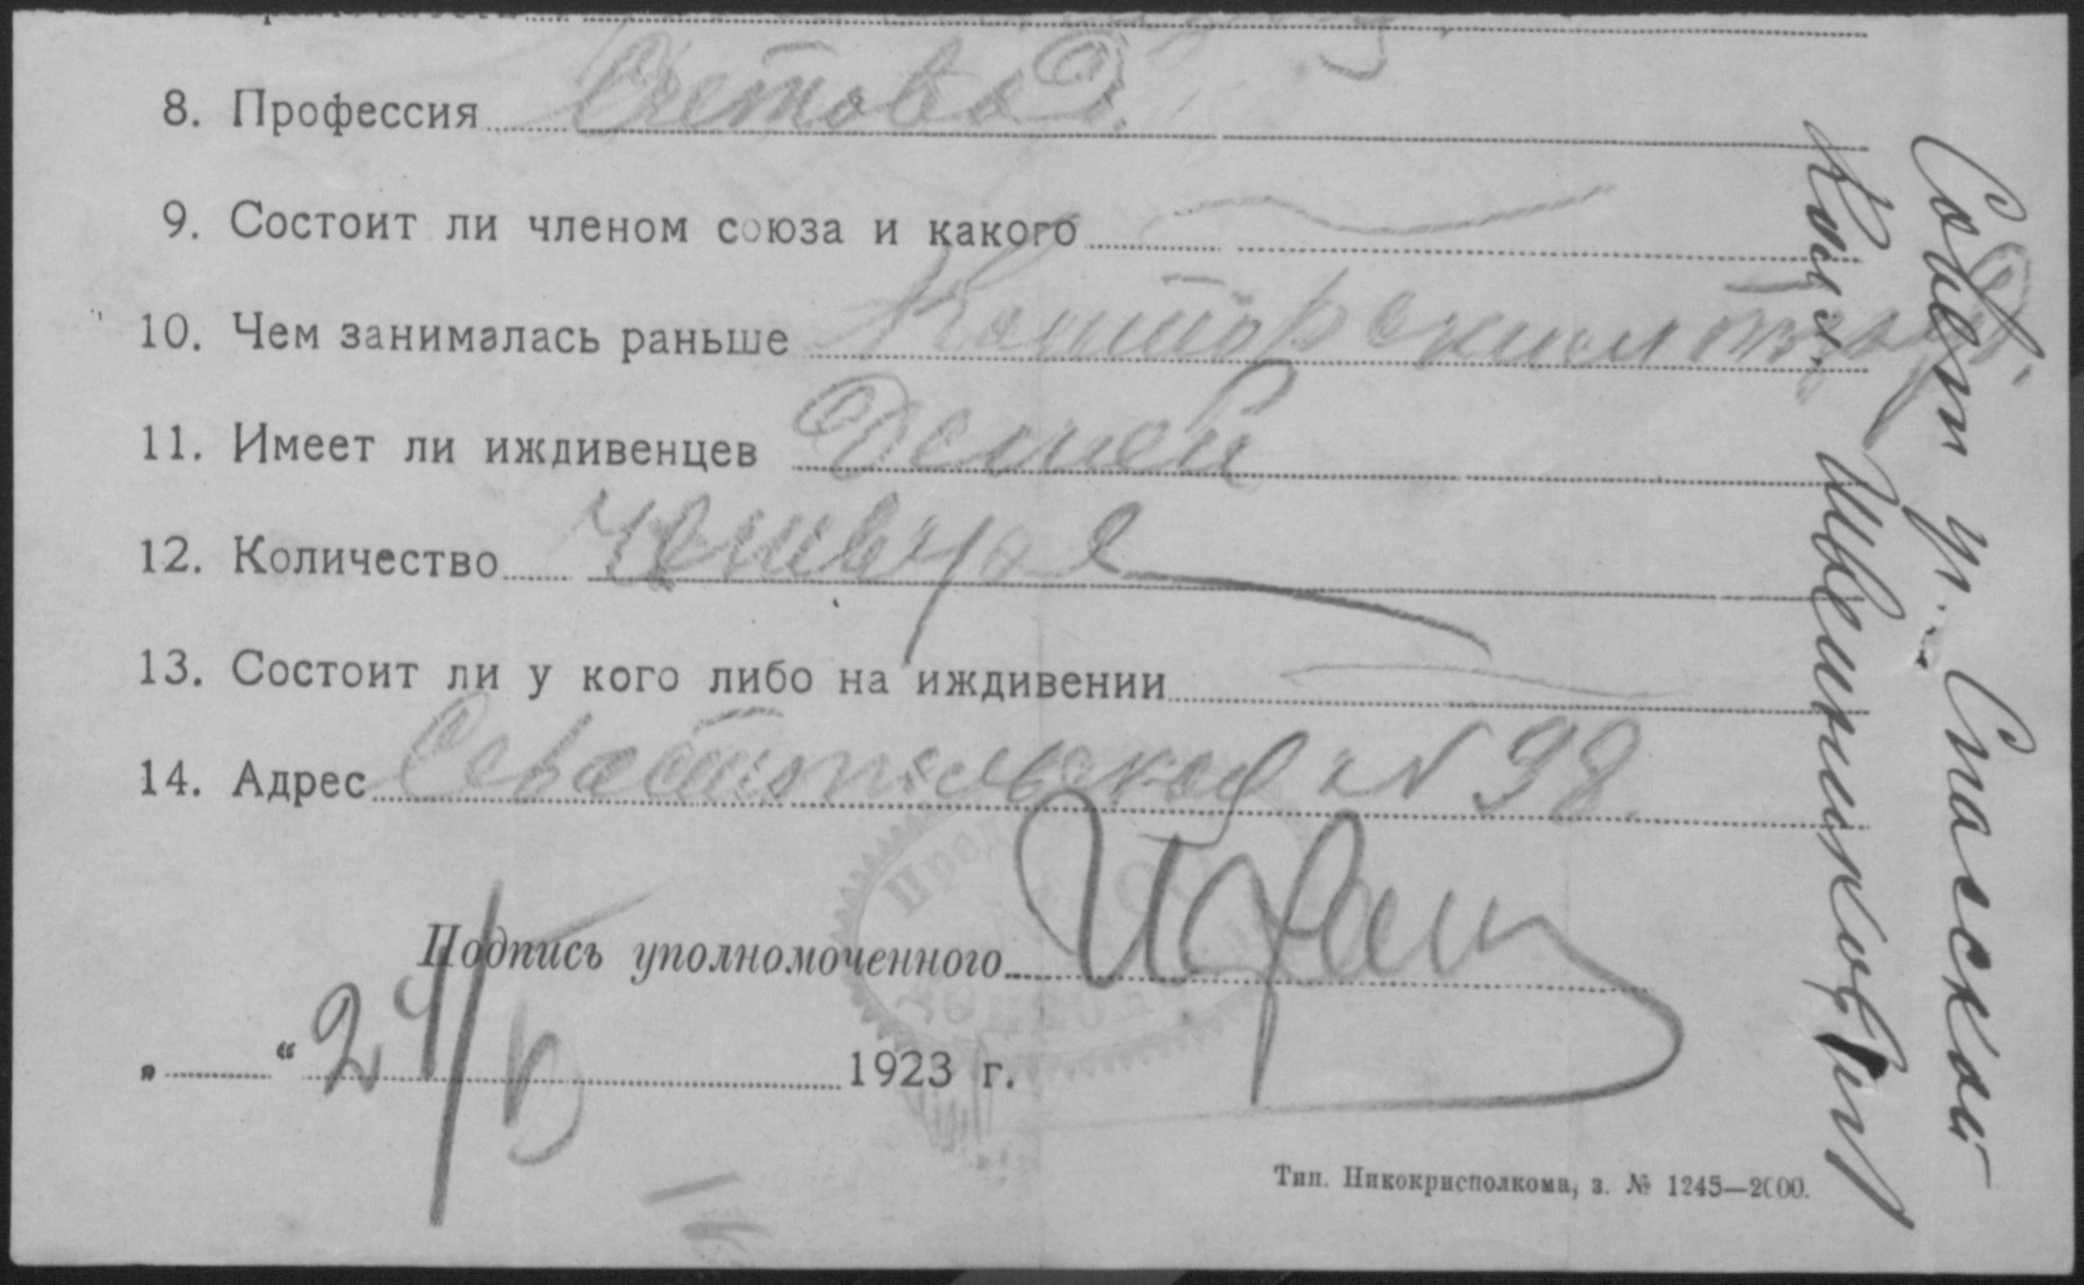 8. Профессия Счетовод.
9. Состоит ли членом союза и какого
10. Чем занималась раньше Конторским труд.
11. Имеет ли иждивенцев Детей
12. Количество четверо
13. Состоит ли у кого либо на иждивении
14. Адрес Севастопольская № 98
Подпись уполномоченного
„ “ 24/V 1923 г.
Тип. Никокрисполкома, з. № 1245—2000.
Совет уг. Спасской